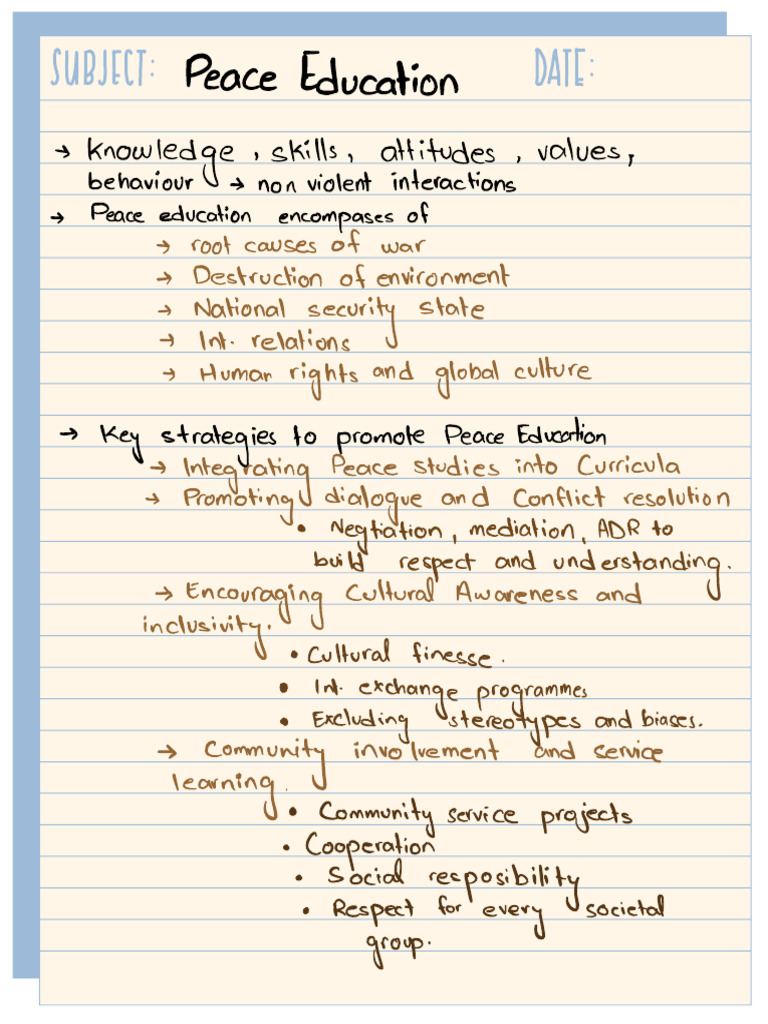 SUBJECT: Peace Education DATE:
→ Knowledge, skills, attitudes, values,
behaviour → non violent interactions
→ Peace education encompases of
→ root causes of war
→ Destruction of environment
→ National security state
→ Int. relations
→ Human rights and global culture
→ Key strategies to promote Peace Education
→ Integrating Peace studies into Curricula
→ Promoting dialogue and Conflict resolution
• Negtiation, mediation, ADR to
build respect and understanding.
→ Encouraging Cultural Awareness and
inclusivity.
• Cultural finesse.
• Int. exchange programmes
• Excluding stereotypes and biases.
→ Community involvement and service
learning.
• Community service projects
• Cooperation
• Social resposibility
• Respect for every societal
group.